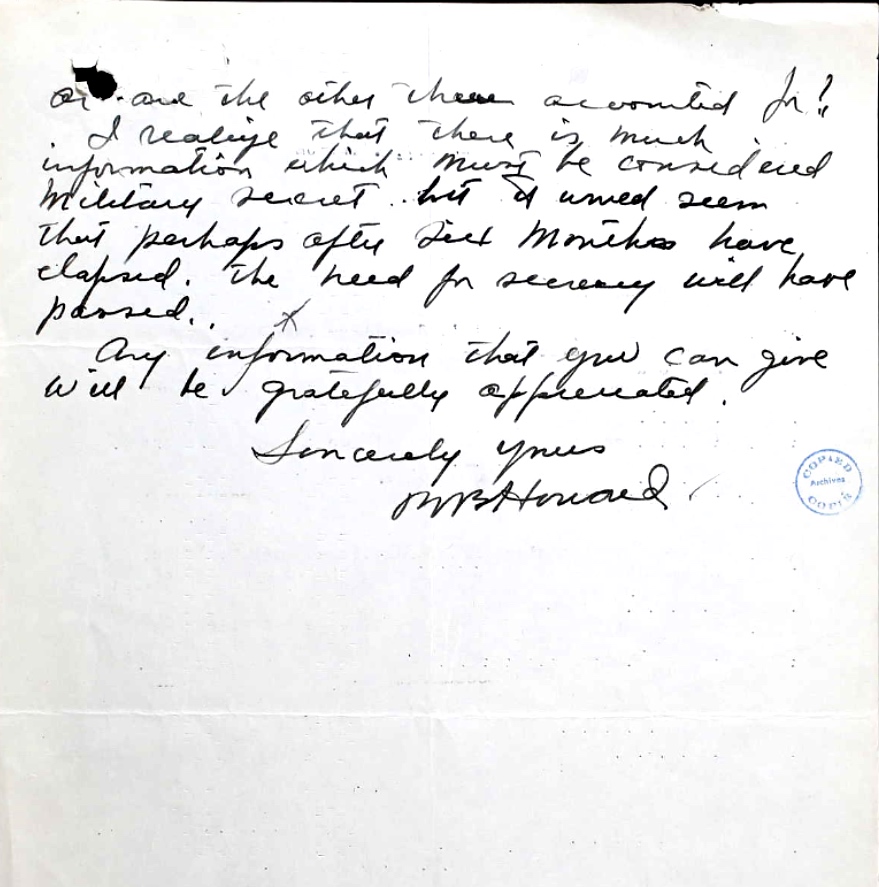 or are the other three accounted for?
I realize that there is much
information which must be considered
Military secret but it would seem
that perhaps after six months have
elapsed. the need for secrecy will have
passed.
x
Any information that you can give
will be gratefully appreciated.
Sincerely yours
Howard
COPIED
Archives
COPIÉ